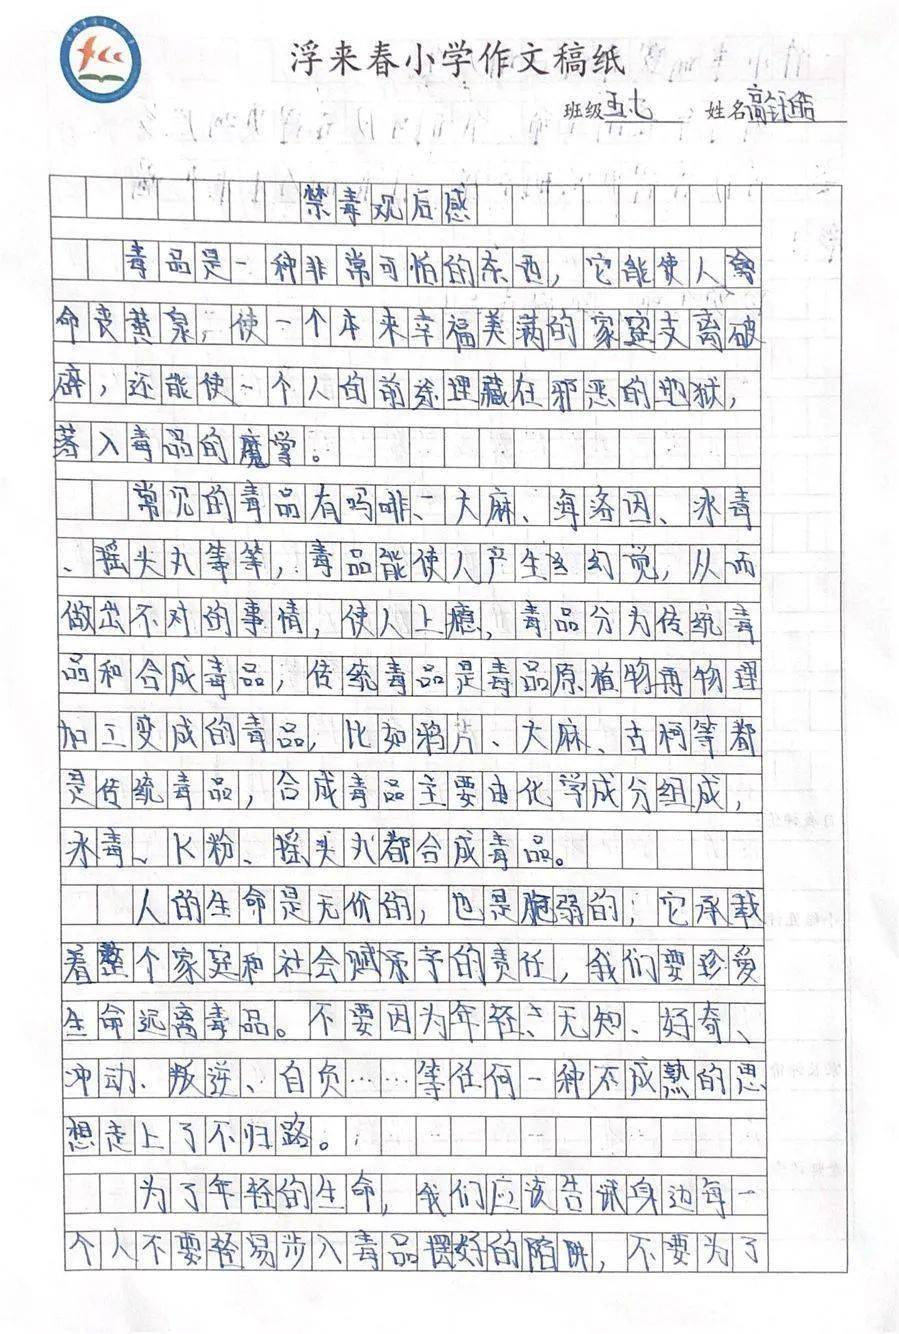 浮来春小学作文稿纸
班级五七 姓名高钰皓
禁毒观后感
毒品是一种非常可怕的东西，它能使人
命丧黄泉，使一个本来幸福美满的家庭支离破
碎，还能使一个人的前途埋藏在邪恶的地狱，
落入毒品的魔掌。
常见的毒品有吗啡、大麻、海洛因、冰毒
、摇头丸等等，毒品能使人产生幻觉，从而
做出不对的事情，使人上瘾，毒品分为传统毒
品和合成毒品，传统毒品是毒品原植物再物理
加工变成的毒品，比如鸦片、大麻、古柯等都
是传统毒品，合成毒品主要由化学成分组成，
冰毒、K粉、摇头丸都合成毒品。
人的生命是无价的，也是脆弱的，它承载
着整个家庭和社会赋予的责任，我们要珍爱
生命远离毒品。不要因为年轻、无知、好奇、
冲动、叛逆、自负……等任何一种不成熟的思
想走上了不归路。
为了年轻的生命，我们应该告诫身边每一
个人不要轻易步入毒品摆好的陷阱，不要为了